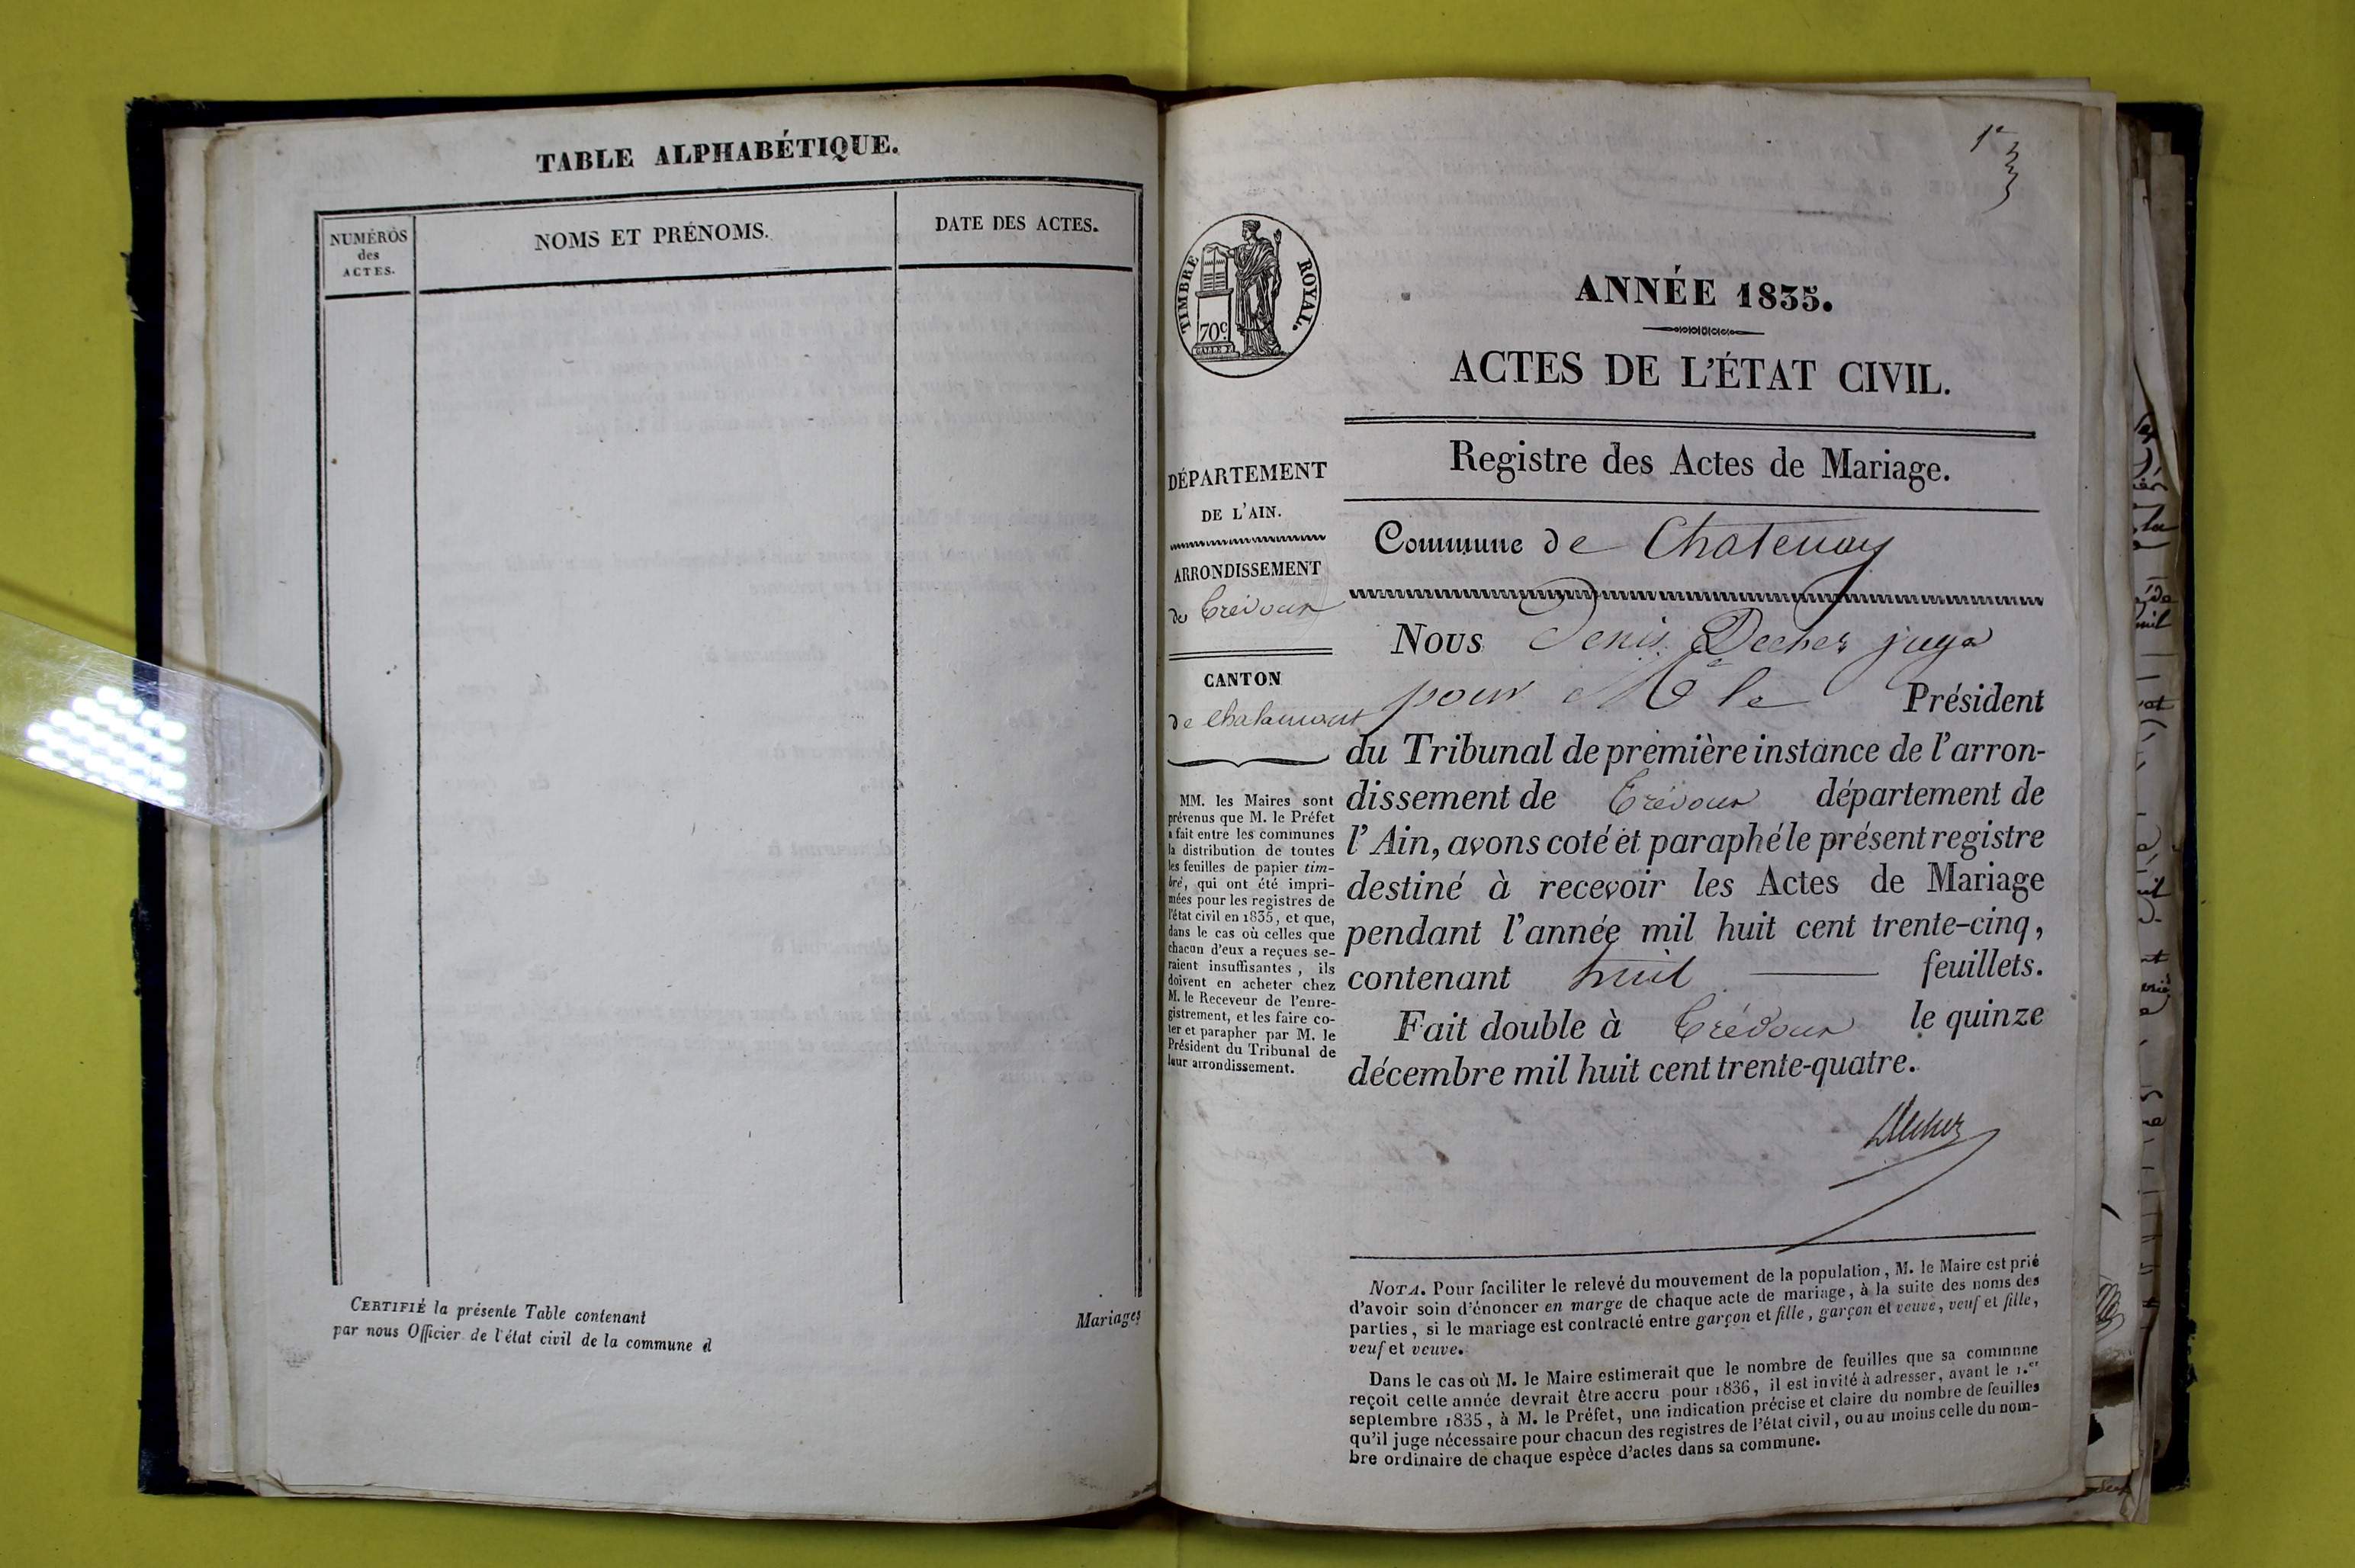 TABLE ALPHABÉTIQUE.
NUMÉROS
des
ACTES.
NOMS ET PRÉNOMS.
DATE DES ACTES.
CERTIFIÉ la présente Table contenant
Mariages
par nous Officier de l'état civil de la commune d
1er
TIMBRE ROYAL.
70c
ANNÉE 1835.
ACTES DE L'ÉTAT CIVIL.
Registre des Actes de Mariage.
DÉPARTEMENT
DE L'AIN.
ARRONDISSEMENT
de Trévoux
CANTON
de Chalamont
MM. les Maires sont
prévenus que M. le Préfet
a fait entre les communes
la distribution de toutes
les feuilles de papier tim-
bré, qui ont été impri-
mées pour les registres de
l'état civil en 1835, et que,
dans le cas où celles que
chacun d'eux a reçues se-
raient insuffisantes, ils
doivent en acheter chez
M. le Receveur de l'enre-
gistrement, et les faire co-
ter et parapher par M. le
Président du Tribunal de
leur arrondissement.
Commune de Chatenay
Nous Denis Decher juge
pour M le Président
du Tribunal de première instance de l'arron-
dissement de Trévoux département de
l'Ain, avons coté et paraphé le présent registre
destiné à recevoir les Actes de Mariage
pendant l'année mil huit cent trente-cinq,
contenant huit feuillets.
Fait double à Trévoux le quinze
décembre mil huit cent trente-quatre.
Decher
NOTA. Pour faciliter le relevé du mouvement de la population, M. le Maire est prié
d'avoir soin d'énoncer en marge de chaque acte de mariage, à la suite des noms des
parties, si le mariage est contracté entre garçon et fille, garçon et veuve, veuf et fille,
veuf et veuve.
Dans le cas où M. le Maire estimerait que le nombre de feuilles que sa commune
reçoit cette année devrait être accru pour 1836, il est invité à adresser, avant le 1.er
septembre 1835, à M. le Préfet, une indication précise et claire du nombre de feuilles
qu'il juge nécessaire pour chacun des registres de l'état civil, ou au moins celle du nom-
bre ordinaire de chaque espèce d'actes dans sa commune.